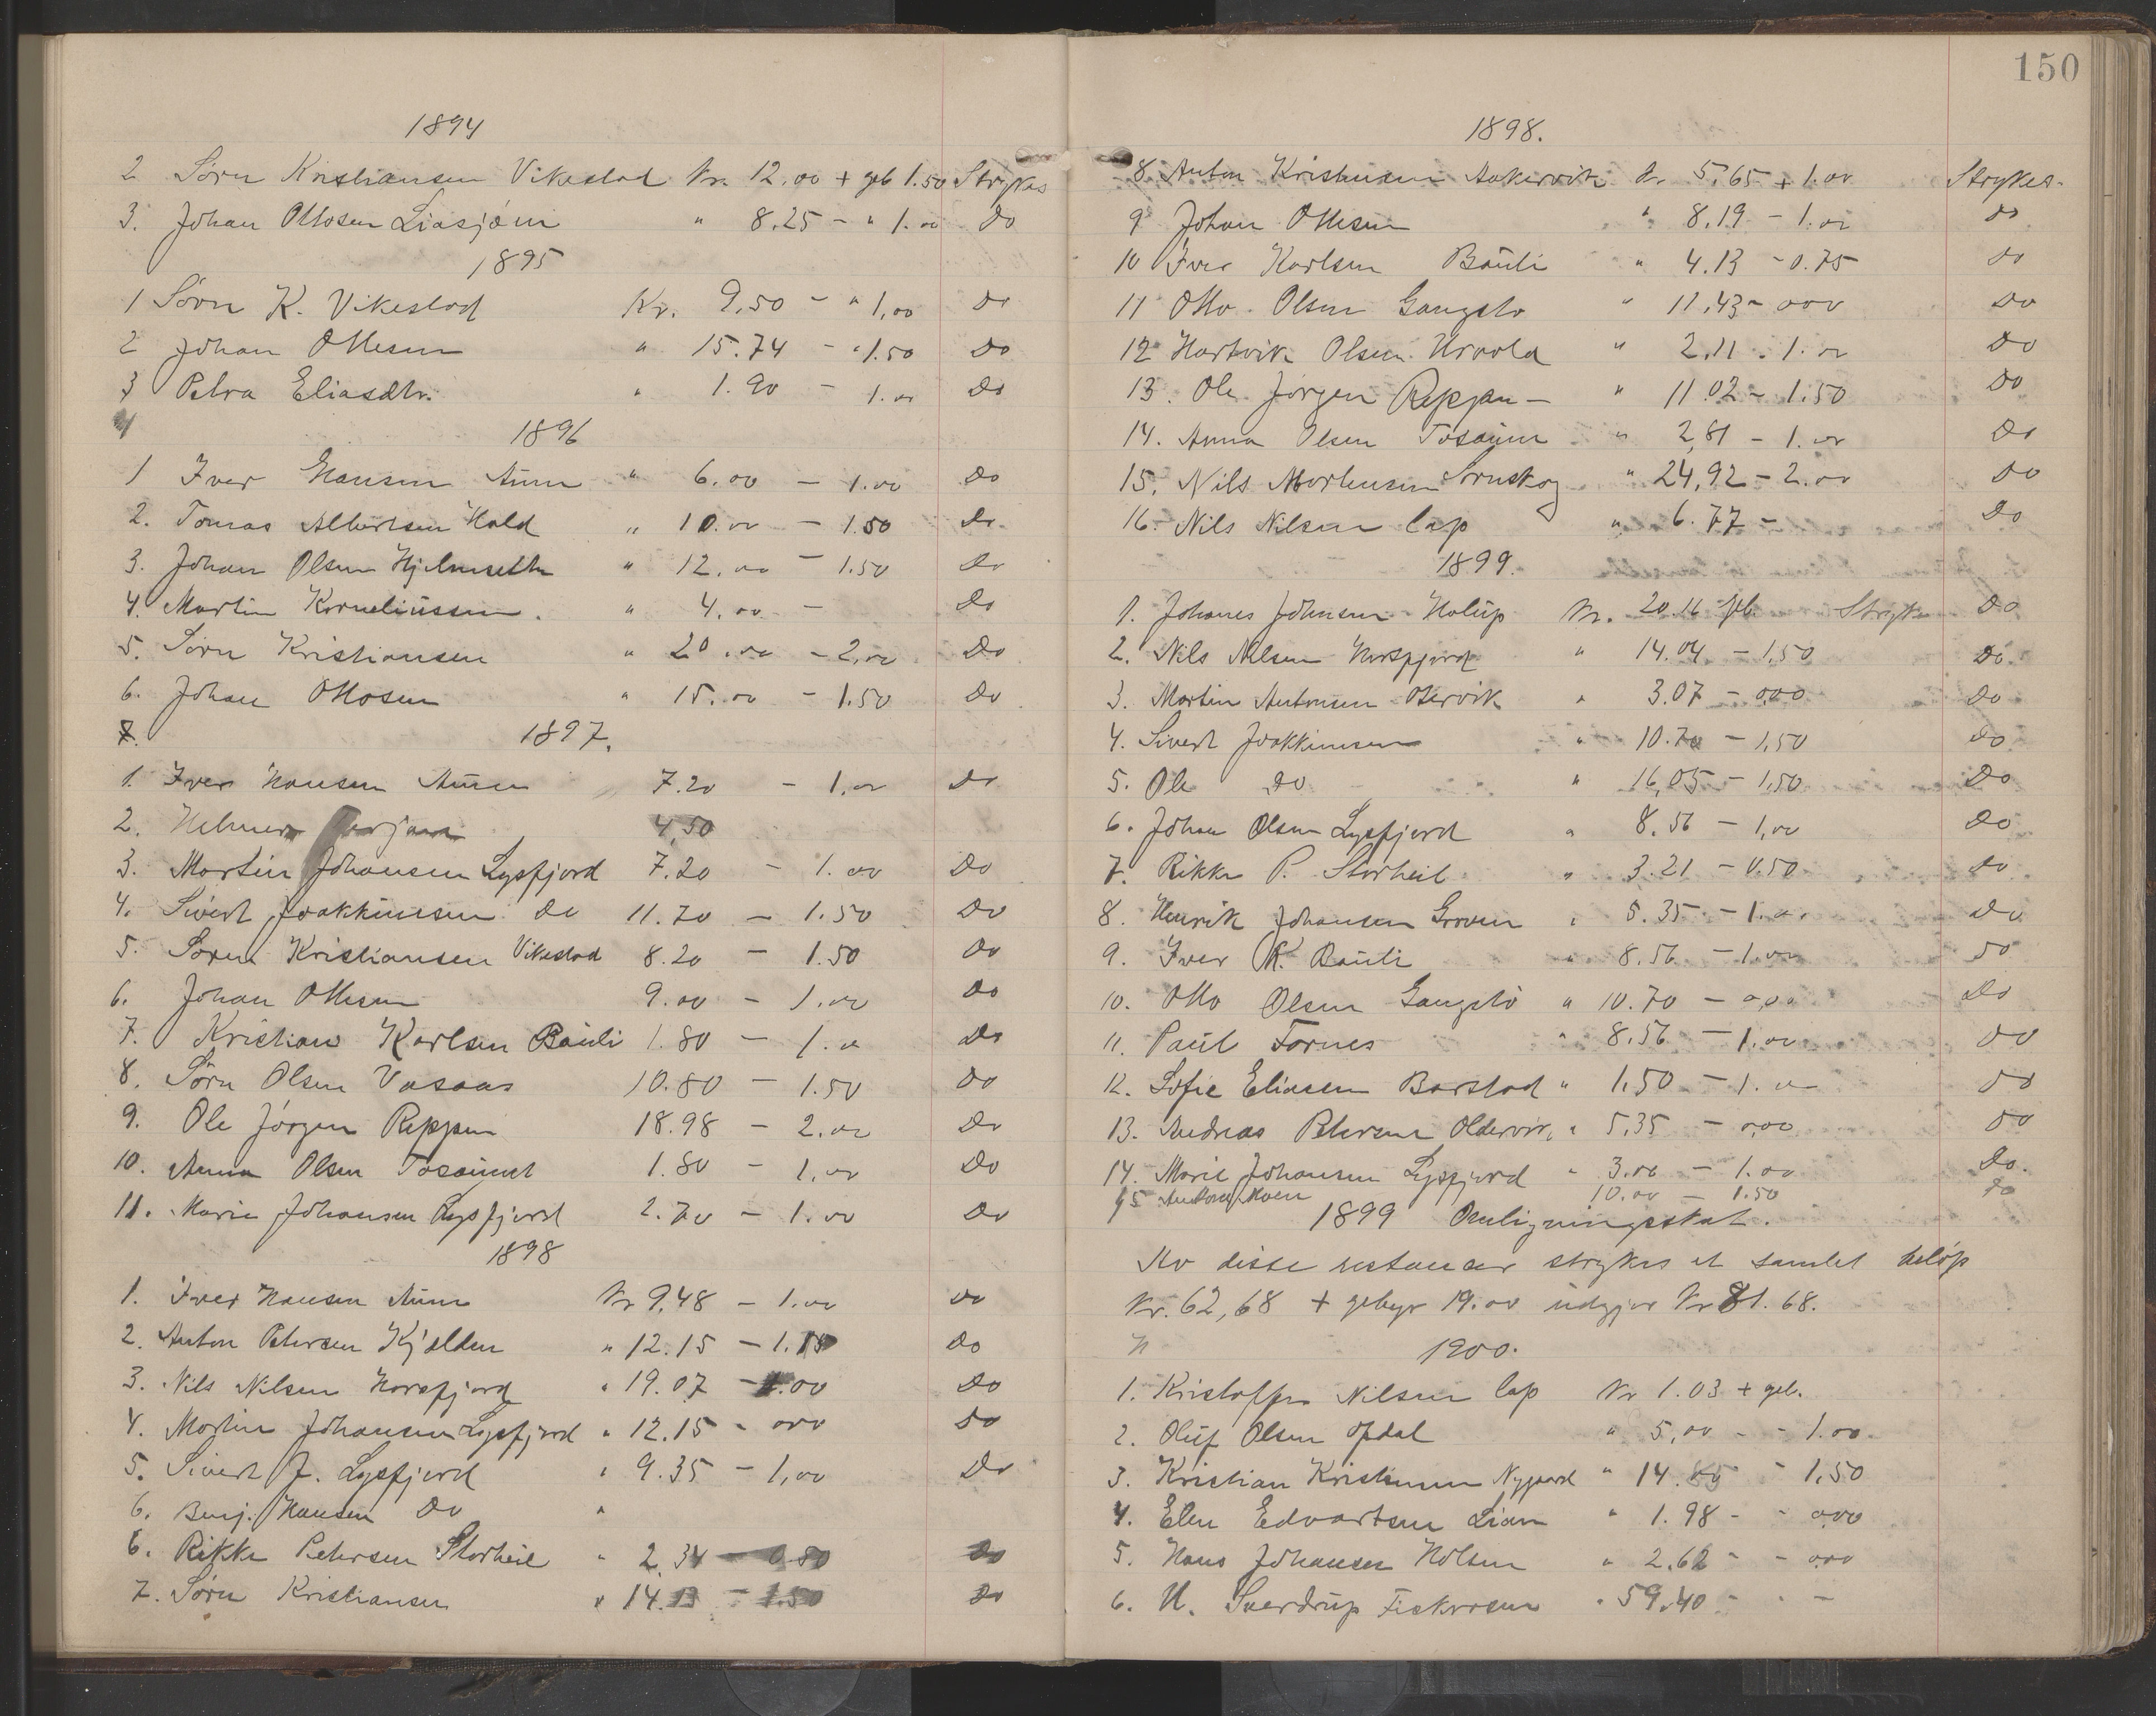 1894
2 Sørn Kristiansen Vikestad Kr. 12.00 + geb 1.50 Strykes
3. Johan Ottosen Liasjøen " 8.25 - " 1.00 Do
1895
1 Sørn K. Vikestad Kr. 9,50 - " 1,00 Do
2 Johan Ottesen " 15.74 - " 1.50 Do
3 Petra Eliasdtr. " 1.90 - 1.00 Do
4
1896
1 Iver Hansen Aune " 6.00 - 1.00 Do
2. Tomas Albertsen Hald " 10.00 - 1.50 Do
3. Johan Olsen Hjelmseth " 12.00 - 1.50 Do
4. Martin Korneliussen. " 4.00 - Do
5. Sørn Kristiansen " 20.00 - 2,00 Do
6. Johan Ottosen " 15.00 - 1.50 Do
7. 1897.
1. Iver Hansen Aune 7.20 - 1.00 Do
2. Helmer 4,50
3. Martin Johansen Lysfjord 7.20 - 1.00 Do
4. Sivert Joakkimsen Do 11.70 - 1.50 Do
5. Søren Kristiansen Vikestad 8.20 - 1.50 Do
6. Johan Ottesen 9.00 - 1.00 Do
7. Kristian Karlsen Bauli 1.80 - 1.00 Do
8. Sørn Olsen Vasaas 10.80 - 1.50 Do
9. Ole Jørgen Reppen 18.98 - 2.00 Do
10. Anna Olsen Tosaunet 1.80 - 1.00 Do
11. Marie Johansen Lysfjord 2.70 - 1.00 Do
1898
1. Iver Hansen Aune Kr 9,48 - 1.00 Do
2. Anton Petersen Kjelden " 12.15 - 1.50 Do
3. Nils Nilsen Horsfjord " 19.07 - 1.00 Do
4. Martin Johansen Lysfjord " 12.15 - 000 Do
5. Sivert J. Lysfjord " 9.35 - 1,00 Do
6. Benj. Hansen Do "
6. Rikke Petersen Storheil " 2.34 - 0.50 Do
7. Sørn Kristiansen " 14.13 - 1.50 Do
150
1898.
8. Anton Kristensen Aakervik Kr. 5.65 + 1.00 Strykes.
9 Johan Ottesen " 8.19 - 1.00 Do
10 Iver Karlsen Bauli " 4.13 - 0.75 Do
11 Otto Olsen Gangstø " 11,43 - 000 Do
12 Hartvik Olsen Urvold " 2,11 - 1.00 Do
13. Ole Jørgen Reppen - " 11.02 - 1.50 Do
14. Anna Olsen Tosaunet " 2,81 - 1.00 Do
15. Nils Mortensen Sørnskog " 24,92 - 2.00 Do
16. Nils Nilsen lap " 6.77 - Do
1899.
1. Johanes Johnsen Holup Kr. 20.16 geb. Stryke Do
2. Nils Nilsen Horsfjord " 14.04 - 1,50 Do
3. Martin Antonsen Otervik " 3.07 - 0,00 Do
4. Sivert Joakkimsen " 10.70 - 1,50 Do
5. Ole Do " 16,05 - 1,50 Do
6. Johan Olsen Lysfjord " 8.56 - 1,00 Do
7. Rikke P. Storheil " 3.21 - 0.50 Do
8. Henrik Johansen Groven " 5.35 - 1.00 Do
9. Iver K. Bauli " 8.56 - 1.00 Do
10. Otto Olsen Gangstø " 10.70 - 0,00 Do
11. Paul Fornes " 8,56 - 1.00 Do
12. Sofie Eliasen Barstad " 1,50 - 1.00 Do
13. Andreas Petersen Oldervik " 5,35 - 0,00 Do
14. Marie Johansen Lysfjord " 3.00 - 1.00 Do.
15 Anton Moen 10.00 - 1.50 Do
1899 Omligningsskat.
Av disse restancer strykes et samlet beløp
Kr. 62,68 + gebyr 19.00 udgjør Kr 81.68.
N 1900.
1. Kristoffer Nilsen lap Kr 1.03 + geb.
2. Oluf Olsen Opdal " 5,00 - - 1.00.
3. Kristian Kristensen Nygaard " 14.85 - 1,50
4. Elen Edvartsen Lian " 1.98 - - 0,00
5. Hans Johansen Holsen " 2.62 - - 0,00
6. U. Sverdrup Fiskerosen " 59,40 - - -